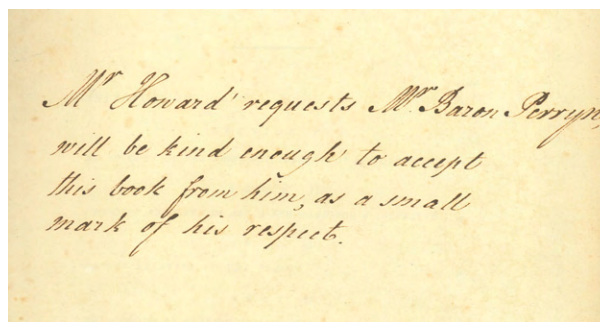 Mr Howard requests Mr. Baron Perryn,
will be kind enough to accept
this book from him, as a small
mark of his respect.